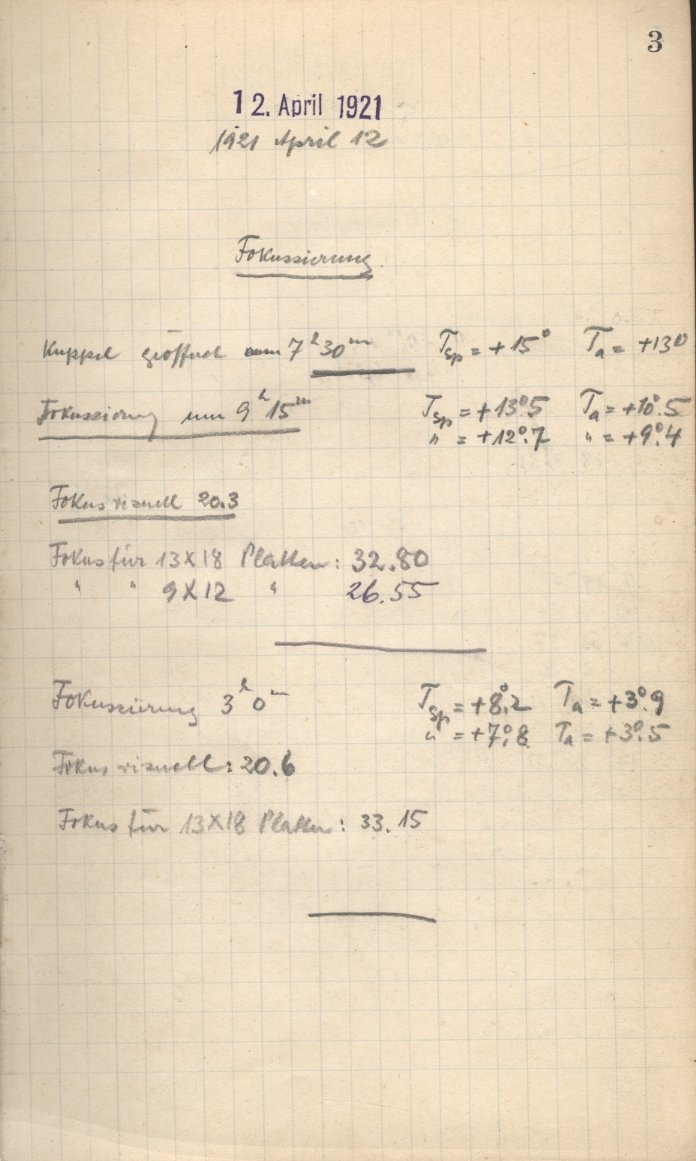 3
12. April 1921
1921 April 12
Fokussierung
Kuppel geöffnet um 7ʰ30ᵐ Tsp = +15° Ta = +13°
Fokussierung um 9ʰ15ᵐ Tsp = +13°.5 Ta = +10°.5
" = +12°.7 " = +9°.4
Fokus visuell 20.3
Fokus für 13×18 Platten: 32.80
" " 9×12 " 26.55
Fokussierung 3ʰ0ᵐ Tsp = +8°.2 Ta = +3°.9
" = +7°.8 Ta = +3°.5
Fokus visuell: 20.6
Fokus für 13×18 Platten: 33.15